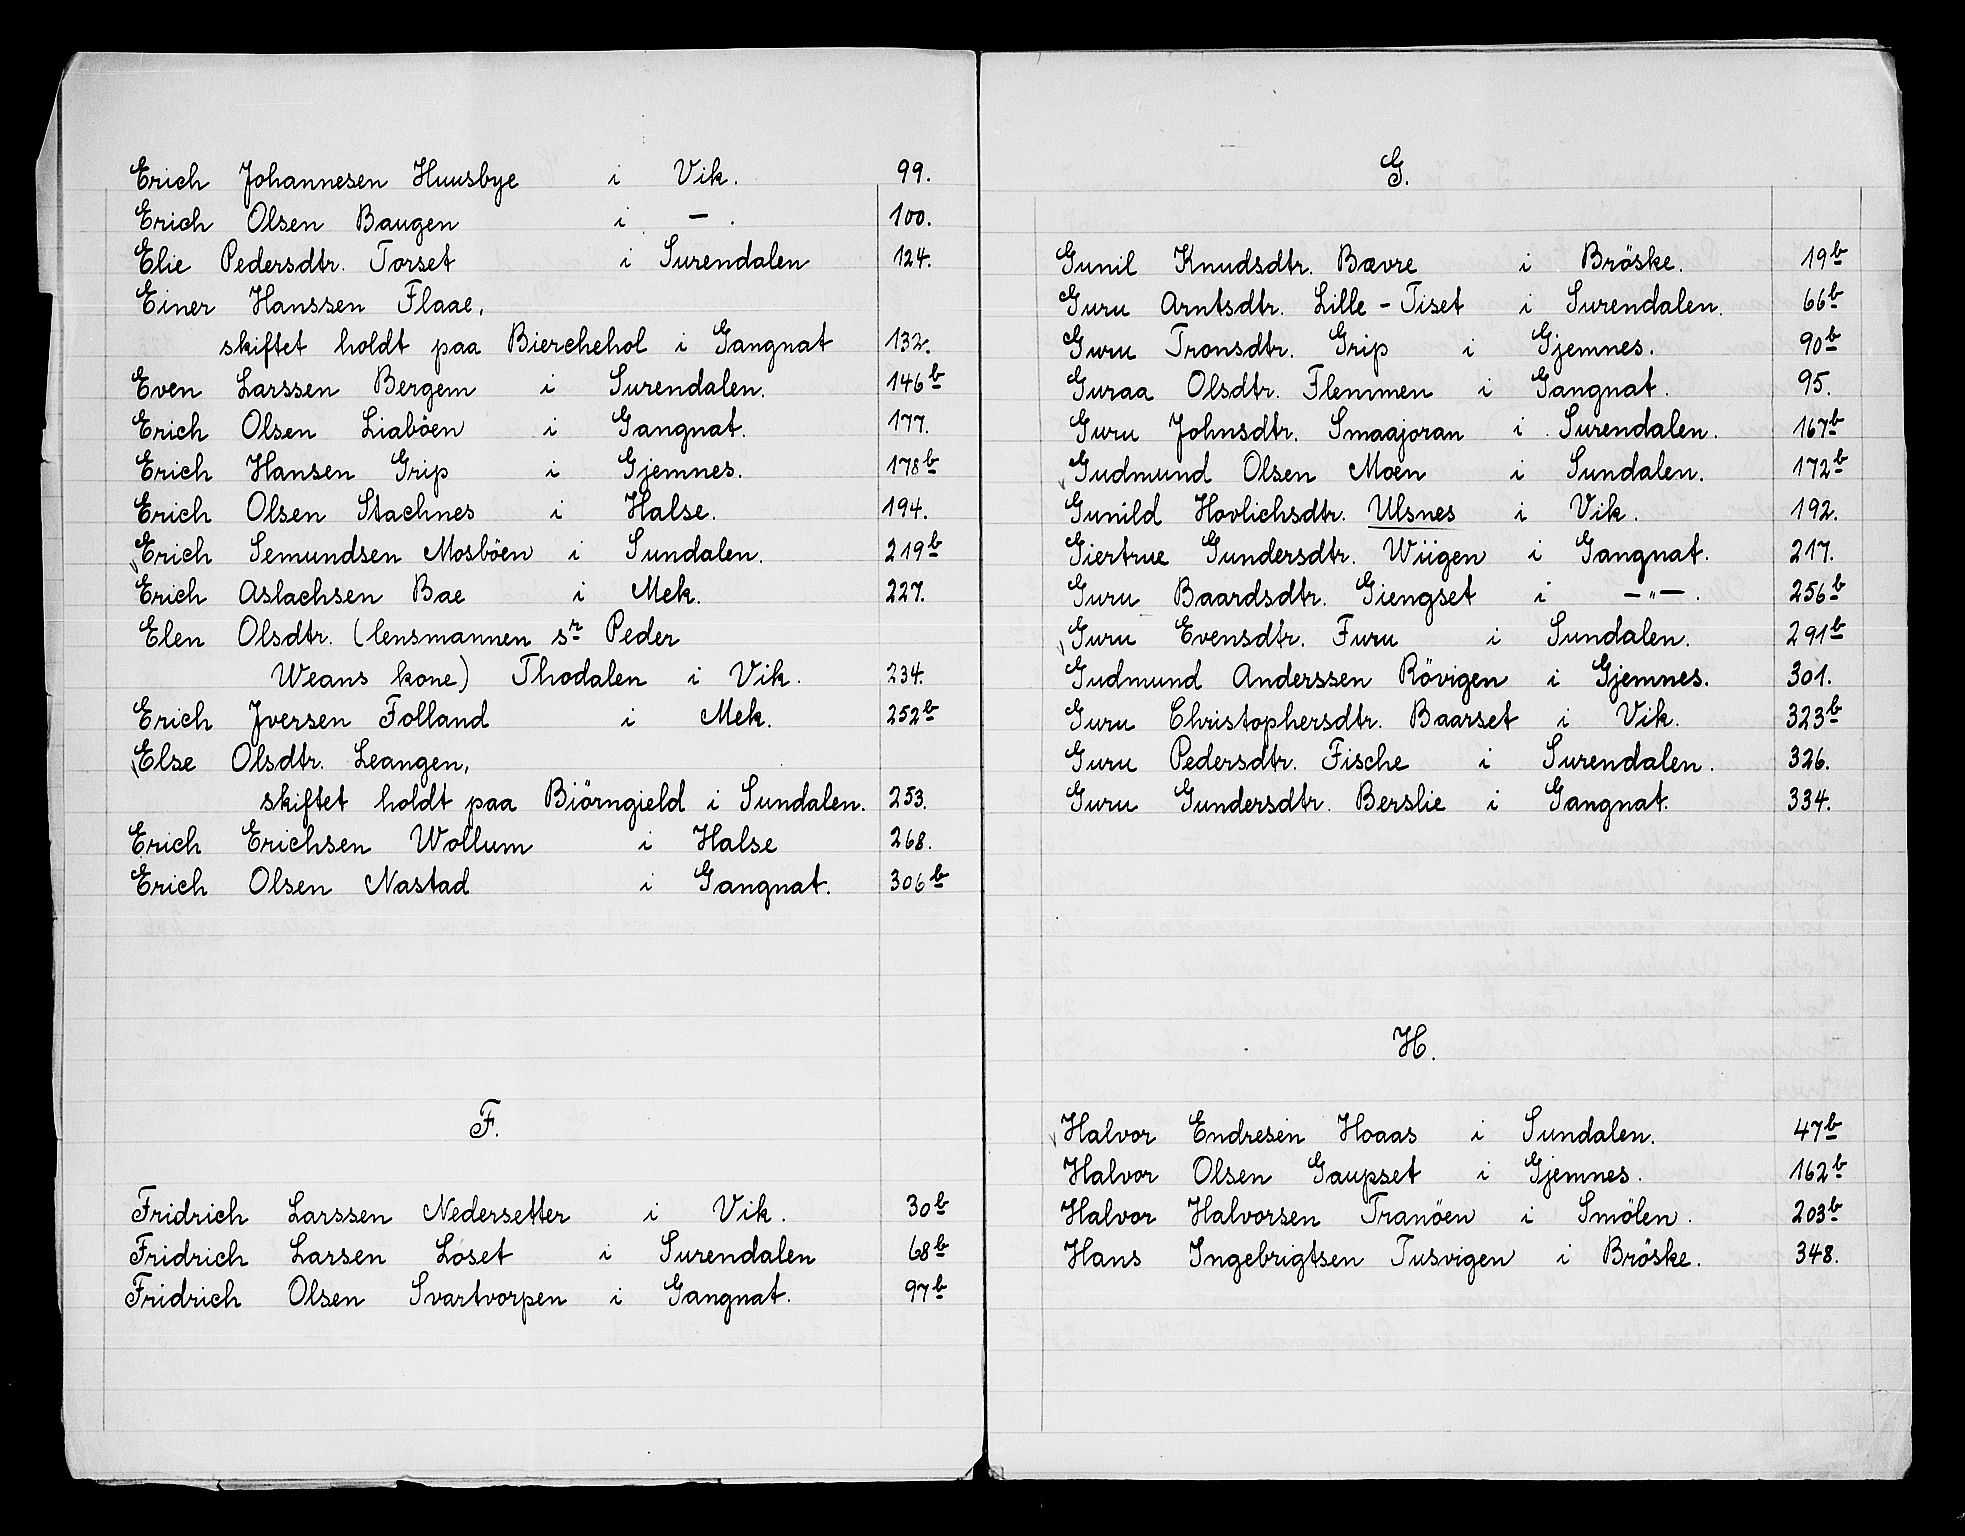 Erich Johannesen Huusbye i Vik. 99.
Erich Olsen Baugen i — . 100.
Elie Pedersdtr. Torset i Surendalen 124.
Einer Hanssen Flaae,
skiftet holdt paa Bierchehol i Gangnat 132.
Even Larssen Bergem i Surendalen. 146b
Erich Olsen Liaböen i Gangnat. 177.
Erich Hansen Grip i Gjemnes. 178b
Erich Olsen Stachnes i Halse. 194.
Erich Semundsen Mosböen i Sundalen. 219b
Erich Aslachsen Bae i Mek. 227.
Elen Olsdtr. (lensmannen sr Peder
Weans kone) Thodalen i Vik. 234.
Erich Jversen Folland i Mek. 252b
Else Olsdtr. Leangen,
skiftet holdt paa Biörngield i Sundalen. 253.
Erich Erichsen Wollum i Halse 268.
Erich Olsen Nastad i Gangnat. 306b
F.
Fridrich Larssen Nedersetter i Vik. 30b
Fridrich Larsen Löset i Surendalen 68b
Fridrich Olsen Svartvorpen i Gangnat. 97b
G.
Gunil Knudsdtr. Bævre i Bröske. 19b
Guru Arntsdtr. Lille-Tiset i Surendalen. 66b
Guru Tronsdtr. Grip i Gjemnes. 90b
Guraa Olsdtr. Flemmen i Gangnat. 95.
Guru Johnsdtr. Smaajoran i Surendalen. 167b
Gudmund Olsen Moen i Sundalen. 172b
Gunild Hovlichsdtr. Ulsnes i Vik. 192.
Giertrue Gundersdtr. Wiigen i Gangnat. 217.
Guru Baardsdtr. Giengset i —"—. 256b
Guru Evensdtr. Furu i Sundalen. 291b
Gudmund Anderssen Rövigen i Gjemnes. 301.
Guru Christophersdtr. Baarset i Vik. 323b
Guru Pedersdtr. Fische i Surendalen. 326.
Guru Gundersdtr. Berslie i Gangnat. 334.
H.
Halvor Endresen Hoaas i Sundalen. 47b
Halvor Olsen Gaupset i Gjemnes. 162b
Halvor Halvorsen Tranöen i Smölen. 203b
Hans Ingebrigtsen Tusvigen i Bröske. 348.